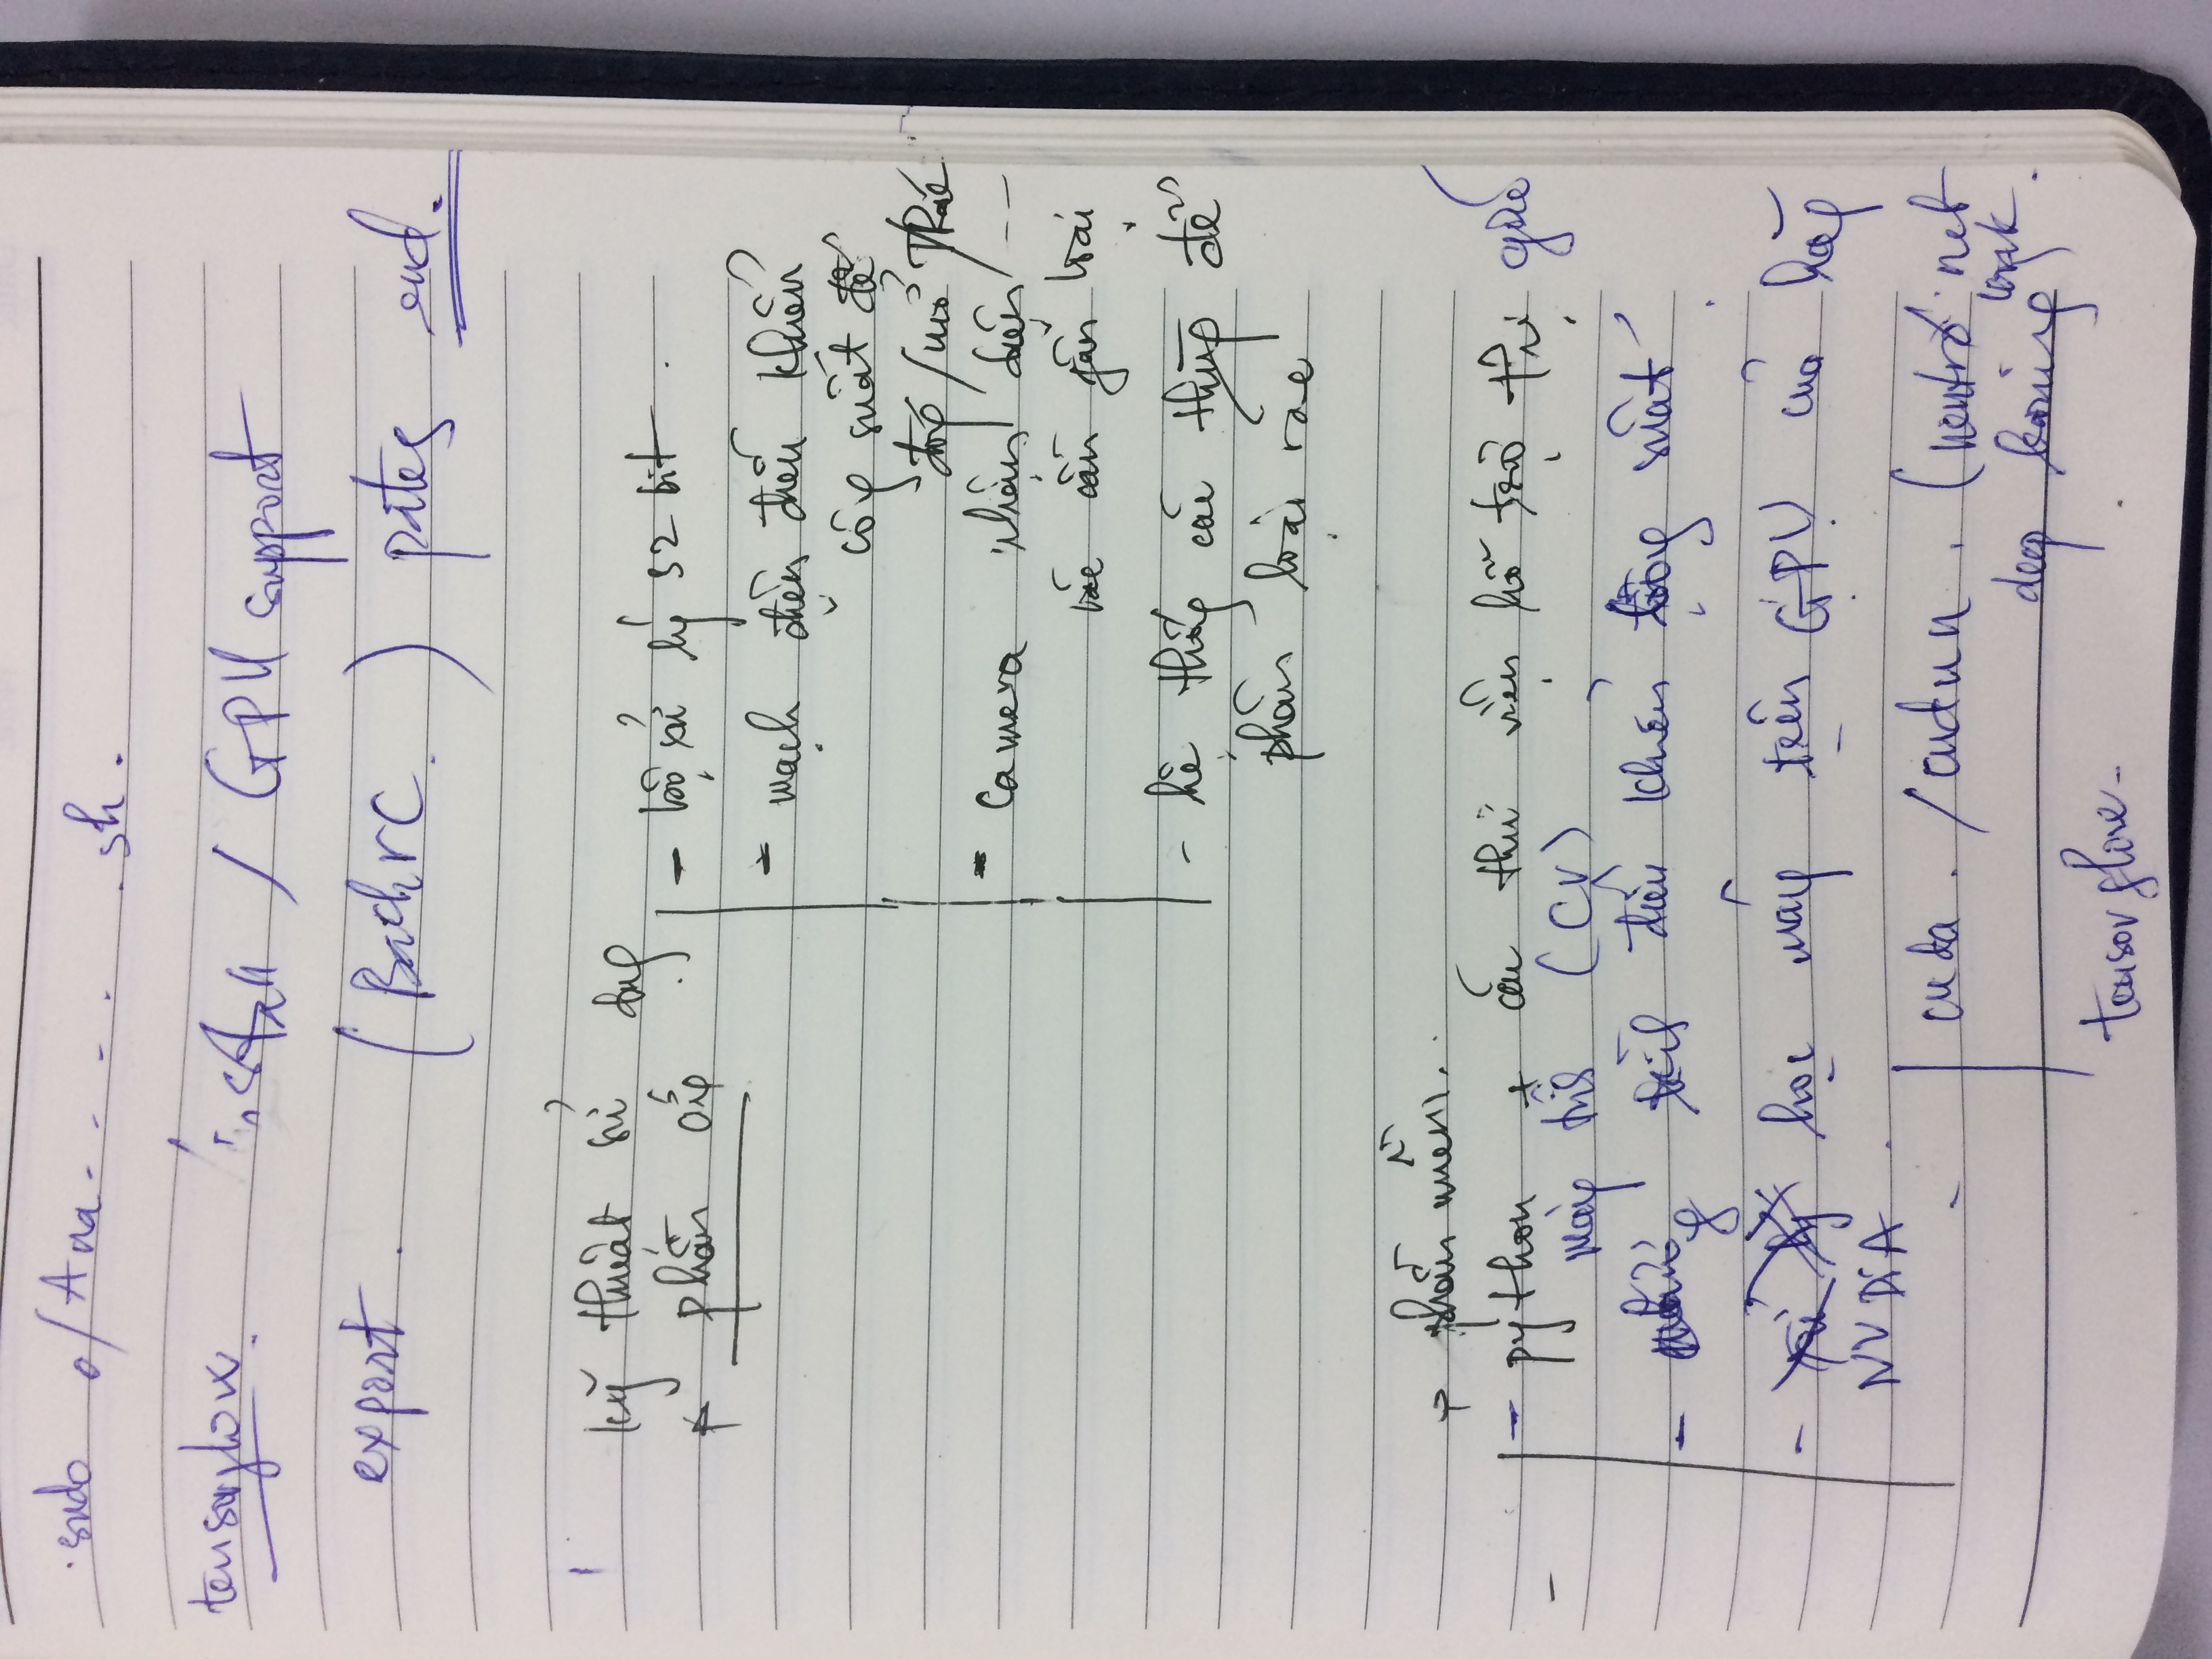 sudo ./Ana - - - . . sh.
tensorflow. install / GPU support
export. (BachrC.) end.
kỹ thuật sử dụng
phần cứng
- bộ xử lý 32 bit.
- mạch điện điều khiển
công suất để
đóng/mở
- camera nhận diện --
rác cần gần loại
- hệ thống các thùng để
phân loại rác
+ phần mềm.
- python + các thư viện hỗ trợ thị giác
máy tính (CV)
- điều khiển công suất
- học máy trên GPU của hãng
NVDiA.
cuda. / cudnn. (neutral net
work
deep learning)
tensorflow-